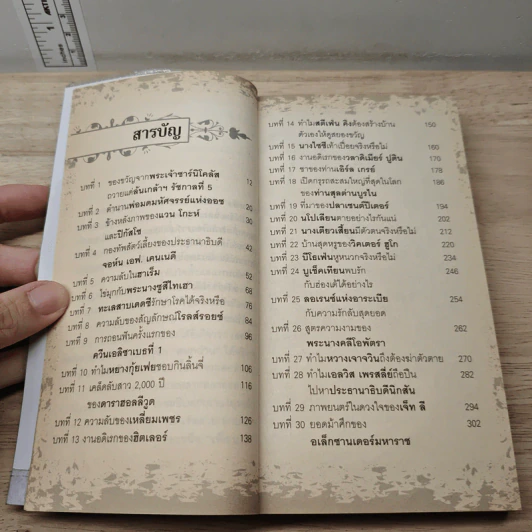 สารบัญ
บทที่ 1 ของขวัญจากพระเจ้าซาร์นิโคลัส 12
ถวายแด่ล้นเกล้าฯ รัชกาลที่ 5
บทที่ 2 ตำนานพ่อมดมหัศจรรย์แห่งออซ 26
บทที่ 3 ข้างหลังภาพของแวน โกะห์ 34
และปิกัสโซ
บทที่ 4 กองทัพสัตว์เลี้ยงของประธานาธิบดี 42
จอห์น เอฟ. เคนเนดี
บทที่ 5 ความลับในฮาเร็ม 52
บทที่ 6 ไข่มุกกับพระนางซูสีไทเฮา 68
บทที่ 7 ทะเลสาบเดดซีรักษาโรคได้จริงหรือ 76
บทที่ 8 ความลับของสัญลักษณ์โรลส์รอยซ์ 84
บทที่ 9 การถอนฟันครั้งแรกของ 96
ควีนเอลิซาเบธที่ 1
บทที่ 10 ทำไมหยางกุ้ยเฟยชอบกินลิ้นจี่ 106
บทที่ 11 เคล็ดลับสาว 2,000 ปี 116
ของดาราฮอลลีวูด
บทที่ 12 ความลับของเหลี่ยมเพชร 126
บทที่ 13 งานอดิเรกของฮิตเลอร์ 138
บทที่ 14 ทำไมสตีเฟ่น คิงต้องสร้างบ้าน 150
ตัวเองให้ดูสยองขวัญ
บทที่ 15 นางไซซีเท้าเปื่อยจริงหรือไม่ 160
บทที่ 16 งานอดิเรกของวลาดิเมียร์ ปูติน 170
บทที่ 17 ชาของท่านเอิร์ล เกรย์ 178
บทที่ 18 เปิดกรุรถสะสมใหญ่ที่สุดในโลก 186
ของท่านสุลต่านบรูไน
บทที่ 19 ที่มาของปลาเซนต์ปีเตอร์ 194
บทที่ 20 นโปเลียนตายอย่างไรกันแน่ 202
บทที่ 21 นางเตียวเสี้ยนมีตัวตนจริงหรือไม่ 212
บทที่ 22 บ้านสุดหรูของวิคเตอร์ ฮูโก 220
บทที่ 23 บีโธเฟ่นหูหนวกจริงหรือไม่ 234
บทที่ 24 บูเช็คเทียนคบรัก 246
กับฮ่องเต้ได้อย่างไร
บทที่ 25 ลอเรนซ์แห่งอาระเบีย 254
กับความรักลับสุดยอด
บทที่ 26 สูตรความงามของ 262
พระนางคลีโอพัตรา
บทที่ 27 ทำไมหวางเจาจวินถึงต้องฆ่าตัวตาย 270
บทที่ 28 ทำไมเอลวิส เพรสลี่ย์ถือปืน 282
ไปหาประธานาธิบดีนิกสัน
บทที่ 29 ภาพยนตร์ในดวงใจของเจ็ท ลี 294
บทที่ 30 ยอดม้าศึกของ 302
อเล็กซานเดอร์มหาราช